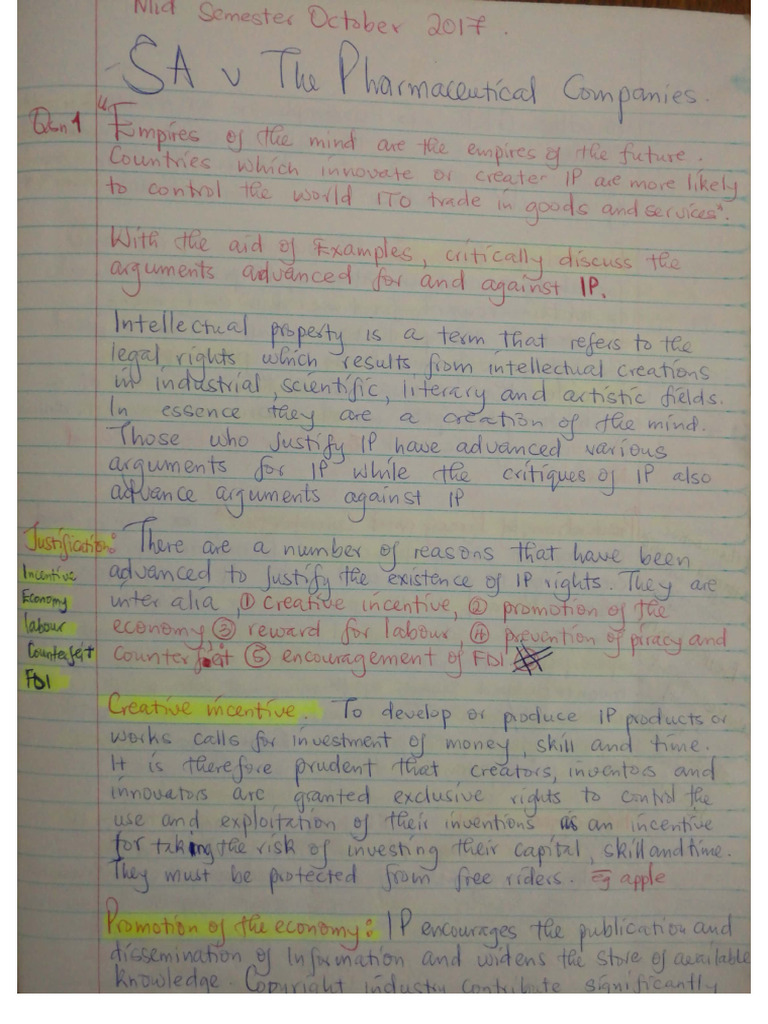 Mid Semester October 2017.
SA v The Pharmaceutical Companies.
Qsn 1
"Empires of the mind are the empires of the future.
Countries which innovate or creater IP are more likely
to control the world ITO trade in goods and services".
With the aid of Examples, critically discuss the
arguments advanced for and against IP.
Intellectual property is a term that refers to the
legal rights which results from intellectual creations
in industrial, scientific, literary and artistic fields.
In essence they are a creation of the mind.
Those who justify IP have advanced various
arguments for IP while the critiques of IP also
advance arguments against IP
Justification:
Incentive
Economy
labour
Counterfeit
FDI
There are a number of reasons that have been
advanced to justify the existence of IP rights. They are
inter alia, ① creative incentive, ② promotion of the
economy ③ reward for labour, ④ prevention of piracy and
counterfeit ⑤ encouragement of FDI
Creative incentive. To develop or produce IP products or
works calls for investment of money, skill and time.
It is therefore prudent that creators, inventors and
innovators are granted exclusive rights to control the
use and exploitation of their inventions as an incentive
for taking the risk of investing their capital, skill and time.
They must be protected from free riders. Eg apple
Promotion of the economy: IP encourages the publication and
dissemination of Information and widens the store of available
knowledge. Copyright industry contribute significantly